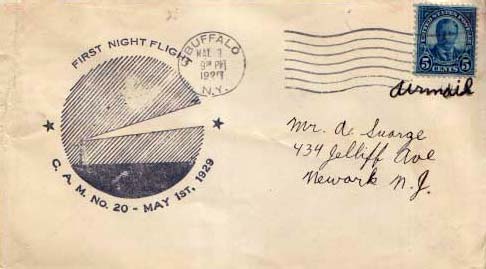 FIRST NIGHT FLIGHT
C. A. M. NO. 20 - MAY 1ST, 1929
BUFFALO
N.Y.
5 CENTS 5
airmail
Mr. A. Suorge
434 Jelliff Ave
Newark N.J.